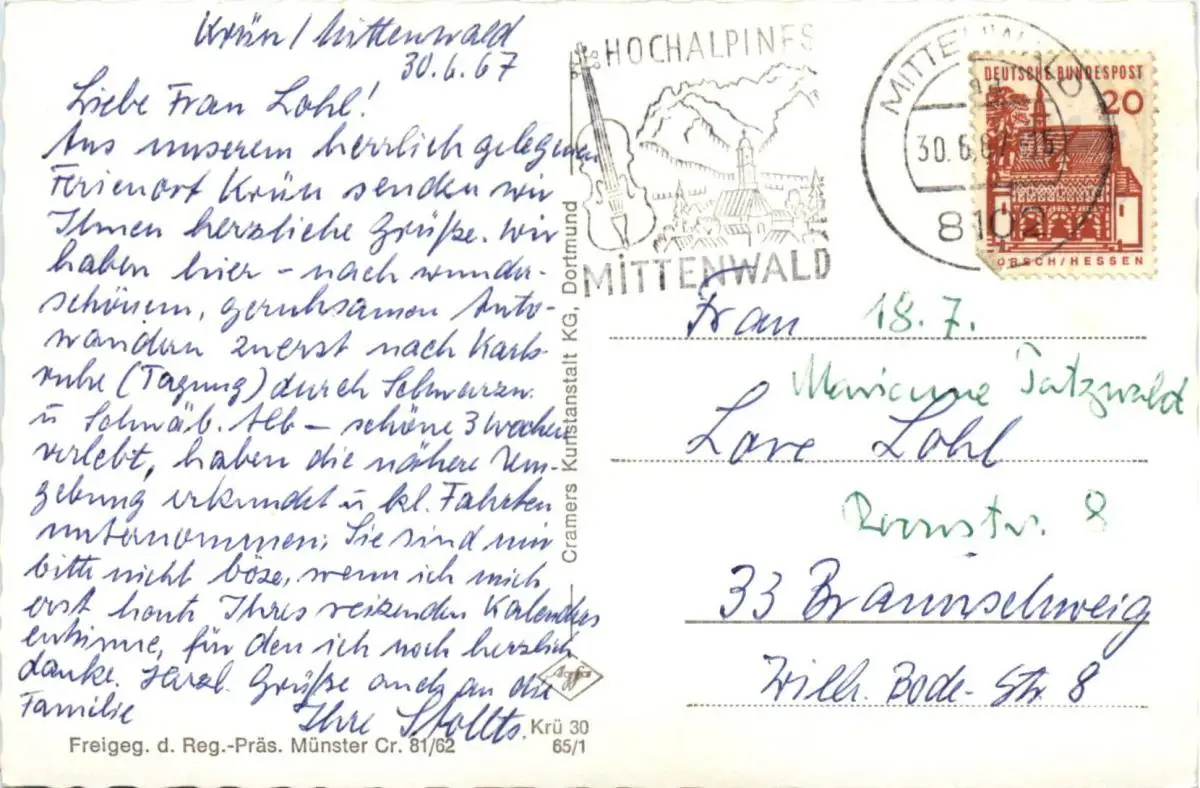 Krün / Mittenwald
30.6.67
Liebe Frau Lohl!
Aus unserem herrlich gelegenen
Ferienort Krün senden wir
Ihnen herzliche Grüße. Wir
haben hier - nach wunder-
schönem, geruhsamen Auto-
wandern zuerst nach Karls-
ruhe (Tagung) durch Schwarzw.
u Schwäb. Alb - schöne 3 Wochen
verlebt, haben die nähere Um-
gebung erkundet u kl. Fahrten
unternommen. Sie sind mir
bitte nicht böse, wenn ich mich
erst heute Ihres reizenden Kalenders
entsinne, für den ich noch herzlich
danke. Herzl. Grüße auch an die
Familie
Ihre Stollts.
Freigeg. d. Reg.-Präs. Münster Cr. 81/62
Krü 30
65/1
Agfa
Cramers Kunstanstalt KG, Dortmund
HOCHALPINES
MITTENWALD
MITTENWALD
30.6.67
8102
DEUTSCHE BUNDESPOST
20
LORSCH/HESSEN
Frau 18.7.
Marianne Tatzwald
Lore Lohl
8
33 Braunschweig
Wilh. Bode-Str. 8